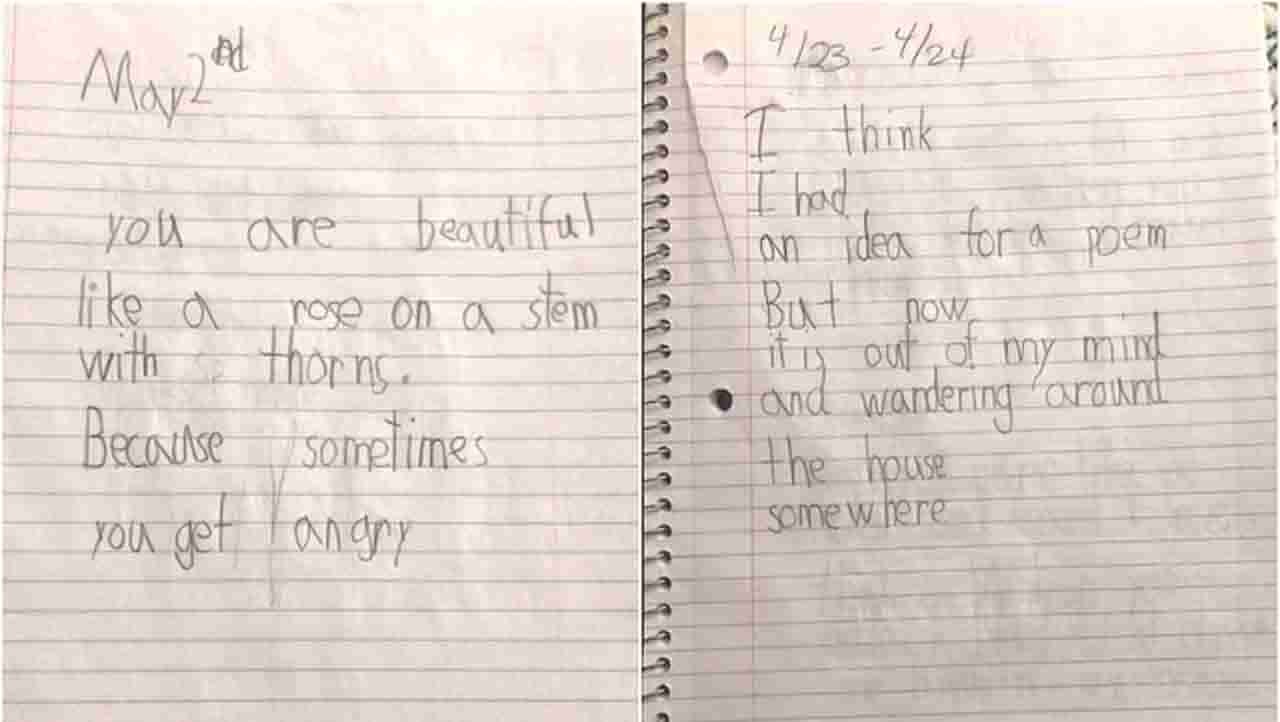 May 2nd
you are beautiful
like a rose on a stem
with thorns.
Because sometimes
you get angry
4/23 - 4/24
I think
I had
an idea for a poem
But now
it is out of my mind
and wandering around
the house
somewhere